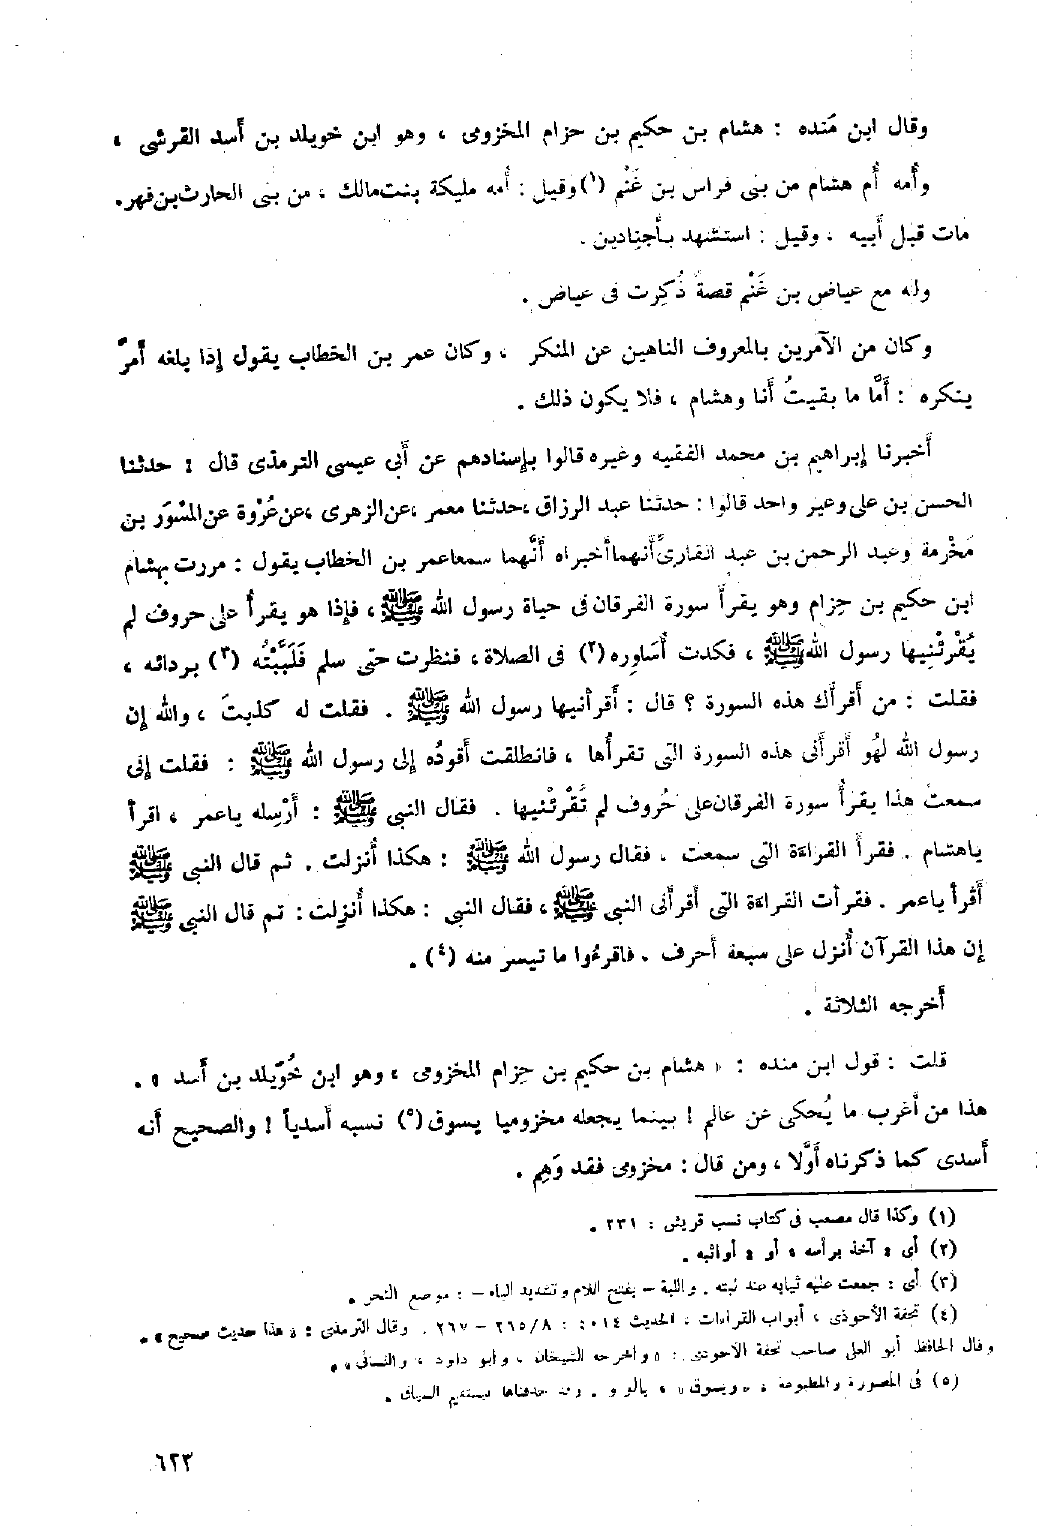 وقال ابن مَنده : هشام بن حكيم بن حزام المخزومى ، وهو ابن خويلد بن أسد القرشى ،
وأمه أُم هشام من بنى فراس بن غَنْم (١) وقيل : أُمه مليكة بنت مالك ، من بنى الحارث بن فهر .
مات قبل أَبيه ، وقيل : استشهد بأَجنادين .
وله مع عياض بن غَنْم قصةٌ ذُكِرت فى عياض .
وكان من الآمرين بالمعروف الناهين عن المنكر ، وكان عمر بن الخطاب يقول إذا بلغه أَمرٌ
ينكره : أَمَّا ما بقيتُ أَنا وهشام ، فلا يكون ذلك .
أَخبرنا إبراهيم بن محمد الفقيه وغيره قالوا بإسنادهم عن أَبى عيسى الترمذى قال : حدثنا
الحسن بن على وغير واحد قالوا : حدثنا عبد الرزاق ، حدثنا معمر ، عن الزهرى ، عن عُرْوة عن المِسْوَر بن
مَخْرمة وعبد الرحمن بن عبد القارىّ أَنهما أَخبراه أَنَّهما سمعا عمر بن الخطاب يقول : مررت بهشام
ابن حكيم بن حِزام وهو يقرأُ سورة الفرقان فى حياة رسول الله ﷺ ، فإذا هو يقرأُ على حروف لم
يُقْرِئْنِيها رسول الله ﷺ ، فكدت أُسَاوِره (٢) فى الصلاة ، فنظرت حتى سلم فَلَبَّبْتُه (٣) بردائه ،
فقلت : من أَقرأَك هذه السورة ؟ قال : أَقرأَنيها رسول الله ﷺ . فقلت له كذبتَ ، والله إن
رسول الله لهُو أَقرأَنى هذه السورة التى تقرأُها ، فانطلقت أَقودُه إلى رسول الله ﷺ : فقلت إنى
سمعتُ هذا يقرأُ سورة الفرقان على حُروف لم تُقْرِئْنيها . فقال النبى ﷺ : أَرْسِله يا عمر ، اقرأ
يا هشام . فقرأَ القراءَة التى سمعت . فقال رسول الله ﷺ : هكذا أُنزلت . ثم قال النبى ﷺ
أَقرأ يا عمر . فقرأت القراءَة التى أَقرأَنى النبى ﷺ ، فقال النبى : هكذا أُنزلت : ثم قال النبى ﷺ
إن هذا القرآن أُنزل على سبعة أَحرف . فاقرءُوا ما تيسر منه (٤) .
أَخرجه الثلاثة .
قلت : قول ابن منده : « هشام بن حكيم بن حِزام المخزومى ، وهو ابن خُوَيلد بن أَسد » .
هذا من أَغرب ما يُحكى عن عالم ! بينما يجعله مخزوميا يسوق (٥) نسبه أَسدياً ! والصحيح أَنه
أَسدى كما ذكرناه أَوَّلا ، ومن قال : مخزومى فقد وَهِم .
(١) وكذا قال مصعب فى كتاب نسب قريش : ٢٣١ .
(٢) أى : آخذ برأسه ، أو : أواثبه .
(٣) أى : جمعت عليه ثيابه عند لبته . واللبة – بفتح اللام وتشديد الباء – : موضع النحر .
(٤) تحفة الأحوذى ، أبواب القراءات ، الحديث ٤٠١٤ : ٨/٢٦٥ – ٢٦٧ . وقال الترمذى : « هذا حديث صحيح » .
وقال الحافظ أبو العلى صاحب تحفة الأحوذى : « وأخرجه الشيخان ، وأبو داود ، والنسائى » .
(٥) فى المصورة والمطبوعة : « ويسوق » بالواو . وقد حذفناها ليستقيم السياق .
٦٢٣